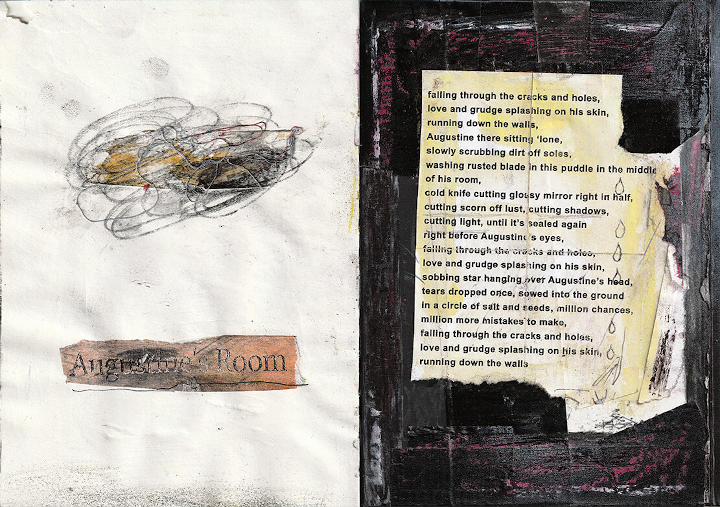 Augustine's Room
falling through the cracks and holes,
love and grudge splashing on his skin,
running down the walls,
Augustine there sitting 'lone,
slowly scrubbing dirt off soles,
washing rusted blade in this puddle in the middle
of his room,
cold knife cutting glossy mirror right in half,
cutting scorn off lust, cutting shadows,
cutting light, until it's sealed again
right before Augustine's eyes,
falling through the cracks and holes,
love and grudge splashing on his skin,
sobbing star hanging over Augustine's head,
tears dropped once, sowed into the ground
in a circle of salt and seeds, million chances,
million more mistakes to make,
falling through the cracks and holes,
love and grudge splashing on his skin,
running down the walls